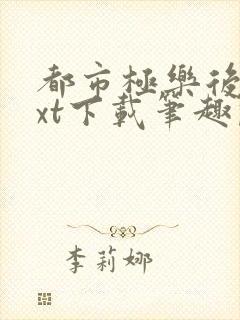 都市極樂後
xt下載筆趣
李莉娜